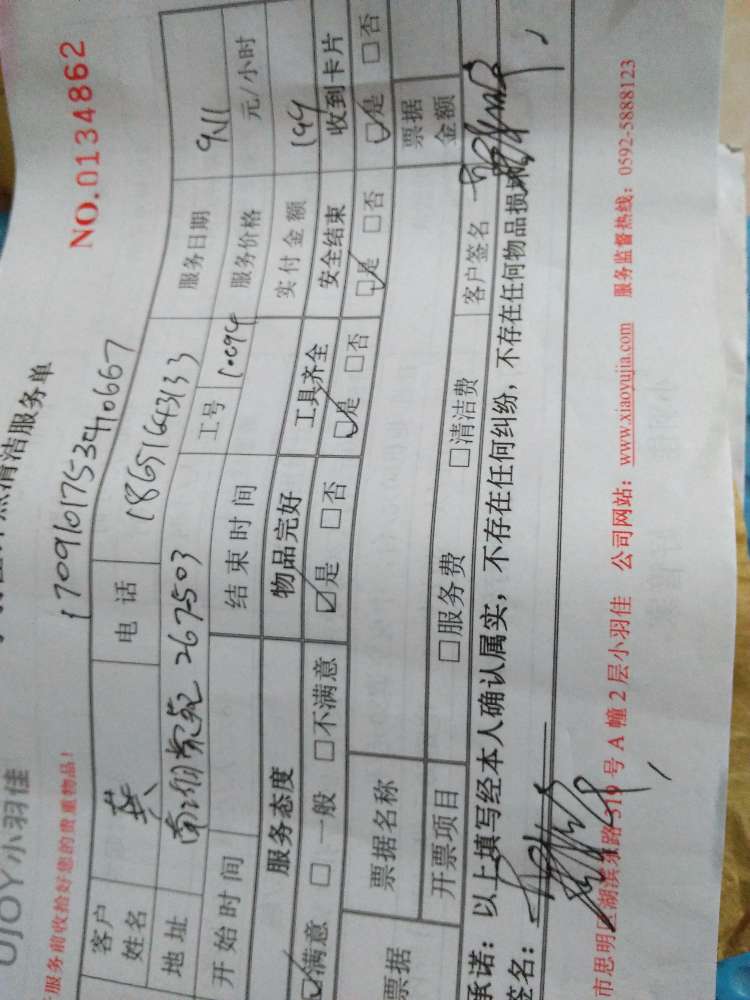 UJOY小羽佳
清洁服务单
NO.0134862
服务前收拾好您的贵重物品!
客户姓名 洪 电话 18651643133 服务日期 9.11
地址 267503 服务价格 元/小时
开始时间 结束时间 工号 实付金额 199
服务态度 物品完好 工具齐全 安全结束 收到卡片
☑满意 □一般 □不满意 ☑是 □否 ☑是 □否 ☑是 □否 ☑是 □否
票据 票据名称 票据金额
开票项目 □服务费 □清洁费 客户签名
承诺:以上填写经本人确认属实,不存在任何纠纷,不存在任何物品损坏
签名:
市思明区湖滨东路319号A幢2层小羽佳 公司网站:www.xiaoyujia.com 服务监督热线:0592-5888123